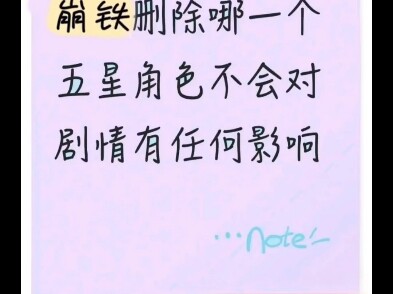 崩铁删除哪一个
五星角色不会对
剧情有任何影响
...note!~